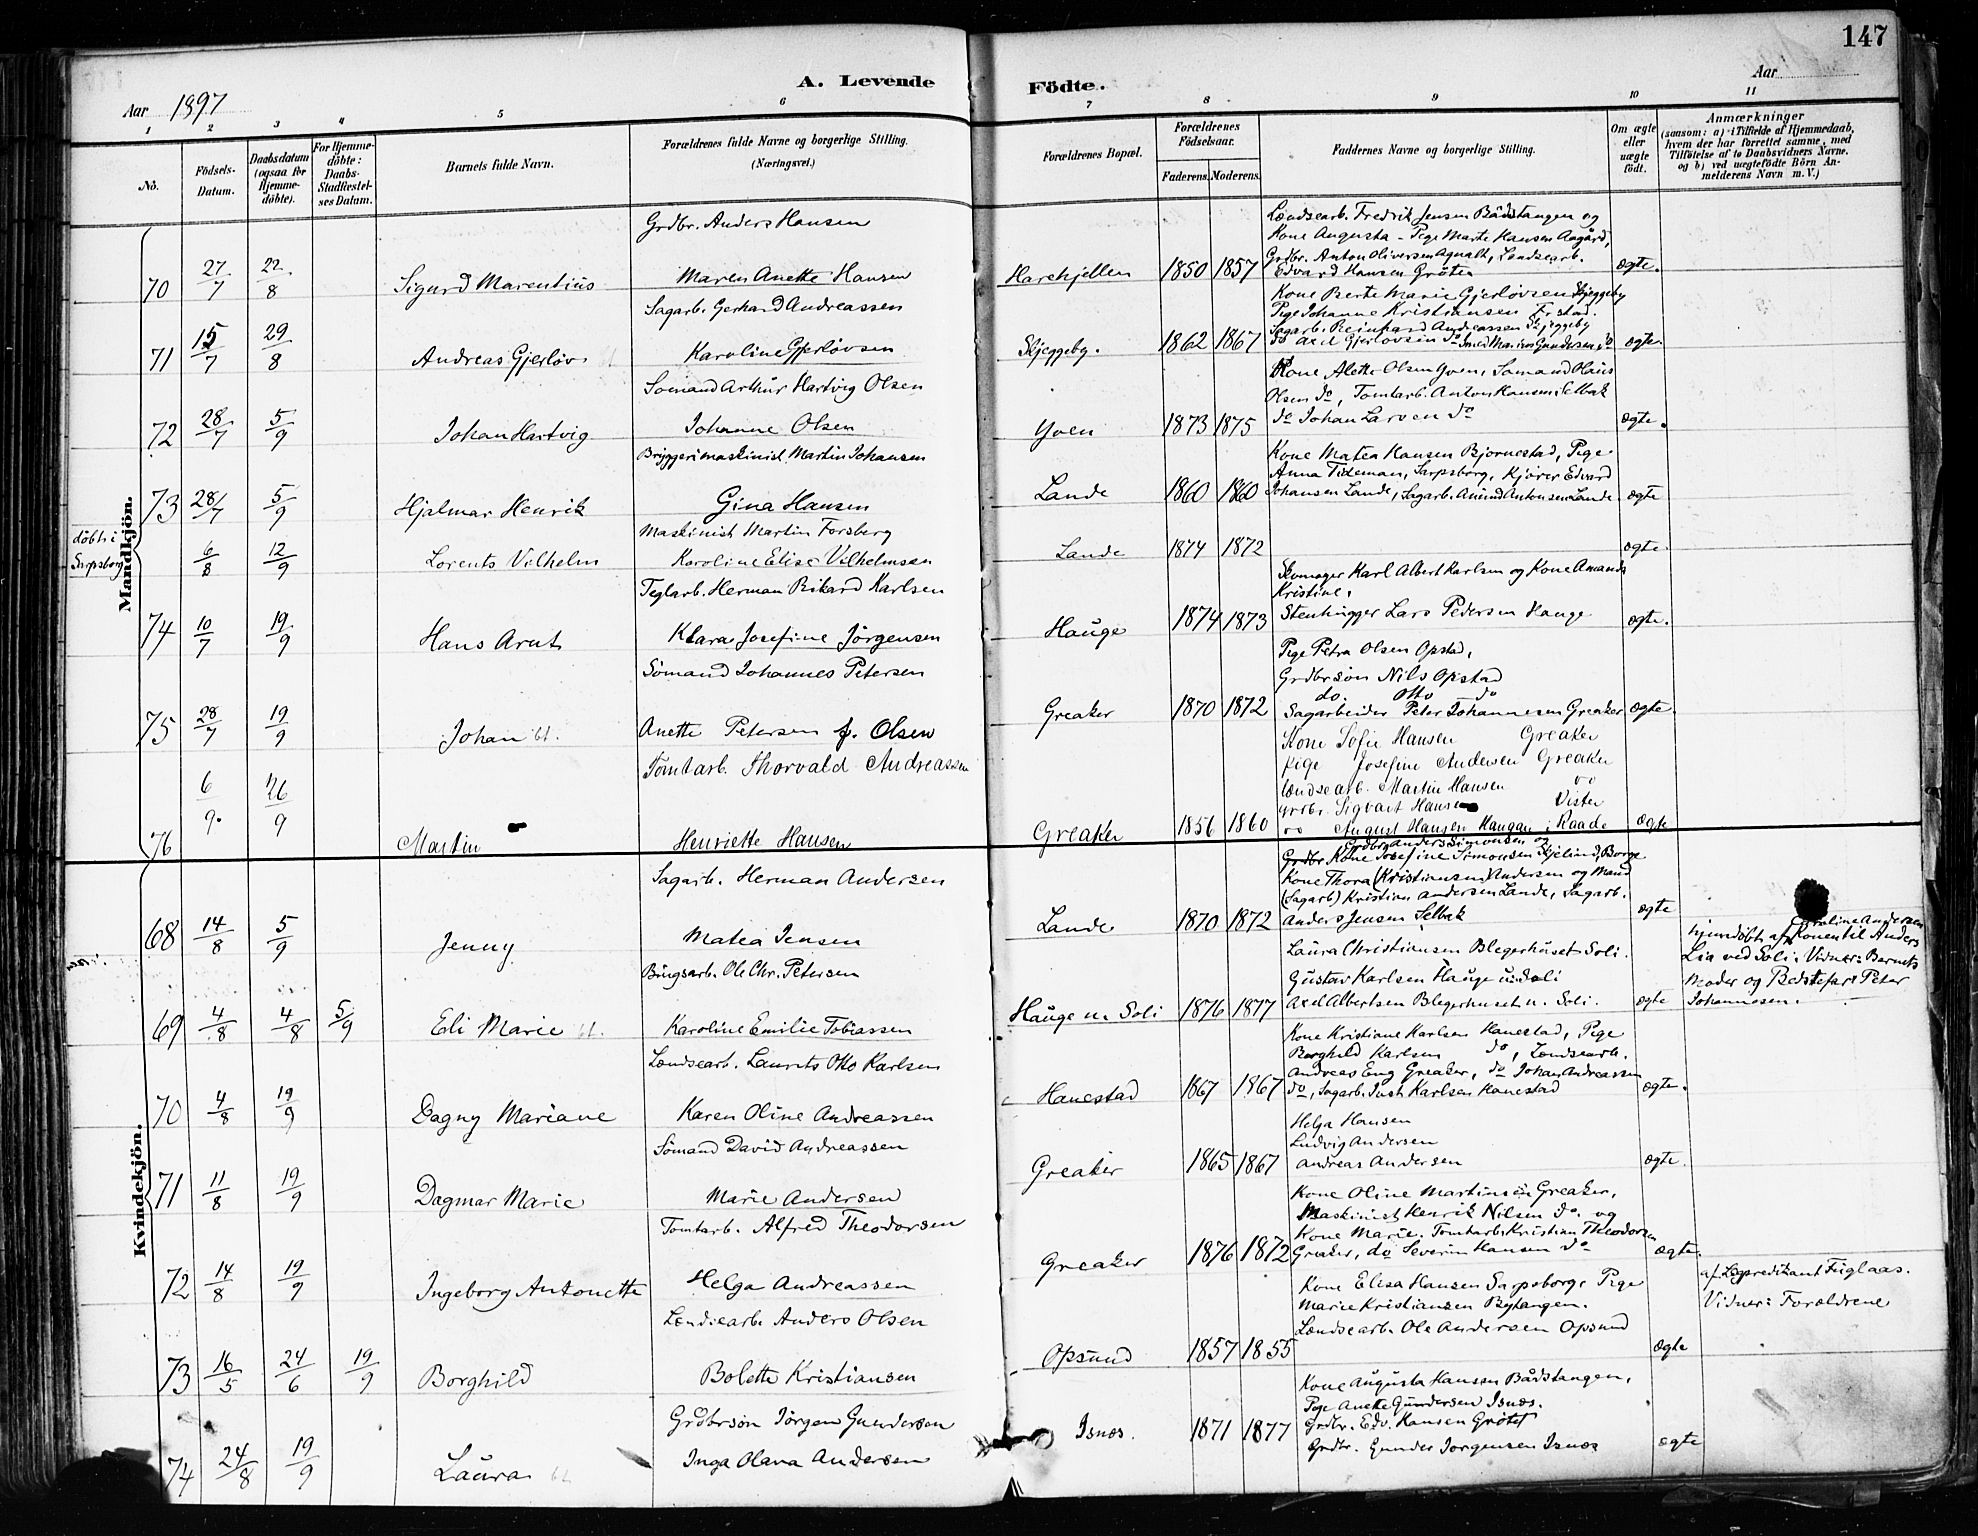 147
A. Levende Födte.
Aar 1897
Aar
1 2 3 4 5 6 7 8 9 10 11
No.
Födsels-Datum.
Daabsdatum (ogsaa for Hjemme-döbte).
For Hjemme-döbte: Daabs-Stadfæstel-ses Datum.
Barnets fulde Navn.
Forældrenes fulde Navne og borgerlige Stilling. (Næringsvei.)
Forældrenes Bopæl.
Forældrenes Födselsaar.
Faderens. Moderens.
Faddernes Navne og borgerlige Stilling.
Om ægte eller uægte födt.
Anmærkninger
(saasom: a) i Tilfælde af Hjemmedaab, hvem der har forrettet samme, med Tilföielse af to Daabsvidners Navne. og b) ved uægtefödte Börn Anmelderens Navn m. V.)
Mandkjön.
70 27/7 22/8 Sigurd Marentius
Grdbr. Anders Hansen
Maren Anette Hansen
Harekjellen 1850 1857
Lændsearb. Fredrik Jensen Bådstangen og
Kone Augusta - Pige Marte Hansen Aagård,
Grdbr. Anton Oliversen Agnalt, Landsearb.
Edvard Hansen Gröten
ægte.
71 15/7 29/8 Andreas Gjerløv
Sagarb. Gerhard Andreassen
Karoline Gjerløvsen
Skjeggeby. 1862 1867
Kone Berte Marie Gjerløvsen Skjeggeby
Pige Johanne Kristiansen
Sagarb. Reinhard Andreassen Skjeggeby
do Axel Gjerløvsen do Smed Marius Gundersen do
ægte.
72 28/7 5/9 Johan Hartvig
Sömand Arthur Hartvig Olsen
Johanne Olsen
Yven 1873 1875
Kone Alette Olsen Yven, Sömand Hans
Olsen do, Tomtarb. Anton Hansen Selbak
do Johan Larsen do
ægte.
73 28/7 5/9 Hjalmar Henrik
Bryggerimaskinist Martin Johansen
Gina Hansen
Lande 1860 1860
Kone Matea Hansen Bjornestad, Pige
Anna Tideman, Sarpsborg, Kjörer Edvard
Johansen Lande, Sagarb. Amund Antonsen Lande
ægte
döbt i Sarpsborg
6/8 12/9 Lorents Vilhelm
Maskinist Martin Forsberg
Karoline Elise Vilhelmsen
Lande 1874 1872
ægte.
74 10/7 19/9 Hans Arnt
Teglarb. Herman Rikard Karlsen
Klara Josefine Jörgensen
Hauge 1874 1873
Skomager Karl Albert Karlsen og Kone Amanda
Kristine,
Stenhugger Lars Pedersen Hauge
ægte.
75 28/7 19/9 Johan
Sömand Johannes Petersen
Anette Petersen f. Olsen
Greaker 1870 1872
Pige Petra Olsen Opstad,
Grdbrsön Nils Opstad
do. Otto do
Sagarbeider Peter Johannesen Greaker
ægte.
76 6/9. 26/9 Martin
Tömtarb. Thorvald Andreassen
Henriette Hansen
Greaker 1856 1860
Kone Sofie Hansen Greaker
Pige Josefine Andersen Greaker
Lændsearb. Martin Hansen do
Grdbr. Sigvart Hansen Vister
do August Hansen Haugan i Raade
ægte
Kvindekjön.
68 14/8 5/9 Jenny
Sagarb. Herman Andersen
Matea Jensen
Lande 1870 1872
Grdbr Anders Simonsen og
Grdbr Kone Josefine Simonsen Skjelind, Borge
Kone Thora (Kristiansen) Andersen og Mand
(Sagarb) Kristian Andersen Lande, Sagarb.
Anders Jensen Selbak
ægte
69 4/8 4/8 5/9 Eli Marie
Brugsarb. Ole Chr. Petersen
Karoline Emilie Tobiassen
Hauge u. Soli 1876 1877
Laura Christiansen Blegerhuset Soli.
Gustav Karlsen Hauge u. Soli
Axel Albertsen Blegerhuset u. Soli.
ægte
Karoline Andersen
hjemdöbt af Konen til Anders
Lia ved Soli. Vidner: Barnets
Moder og Bedstefar Peter
Johannesen.
70 4/8 19/9 Dagny Mariane
Lændsearb. Laurits Otto Karlsen
Karen Oline Andreassen
Hanestad 1867 1867
Kone Kristiane Karlsen Hanestad, Pige
Borghild Karlsen do, Lændsearb.
Andreas Eng Greaker, do Johan Andreassen
do, Sagarb. Just Karlsen Hanestad
ægte.
71 11/8 19/9 Dagmar Marie
Sömand David Andreassen
Marie Andersen
Greaker 1865 1867
Helga Hansen
Ludvig Andersen
Andreas Andersen
ægte.
72 14/8 19/9 Ingeborg Antonette
Tomtarb. Alfred Theodorsen
Helga Andreassen
Greaker 1876 1872
Kone Oline Martinsen Greaker,
Maskinist Henrik Nilsen do. og
Kone Marie. Tomtarb. Kristian Theodorsen
Greaker, do Severin Hansen do
ægte.
73 16/5 24/6 19/9 Borghild
Lændsearb. Anders Olsen
Bolette Kristiansen
Opsund 1857 1855
Kone Elisa Hansen Sarpsborg, Pige
Marie Kristiansen Bytangen.
Lændsearb. Ole Andersen Opsund
ægte
af Lægpredikant Fuglaas.
Vidner: Forældrene
74 24/8 19/9 Laura
Grdbrsön Jörgen Gundersen
Inga Olava Andersen
Isnes. 1871 1877
Kone Augusta Hansen Bådstangen,
Pige Anette Gundersen Isnes.
Grdbr. Edv. Hansen Gröten
Grdbr. Gunder Jorgensen Isnes
ægte